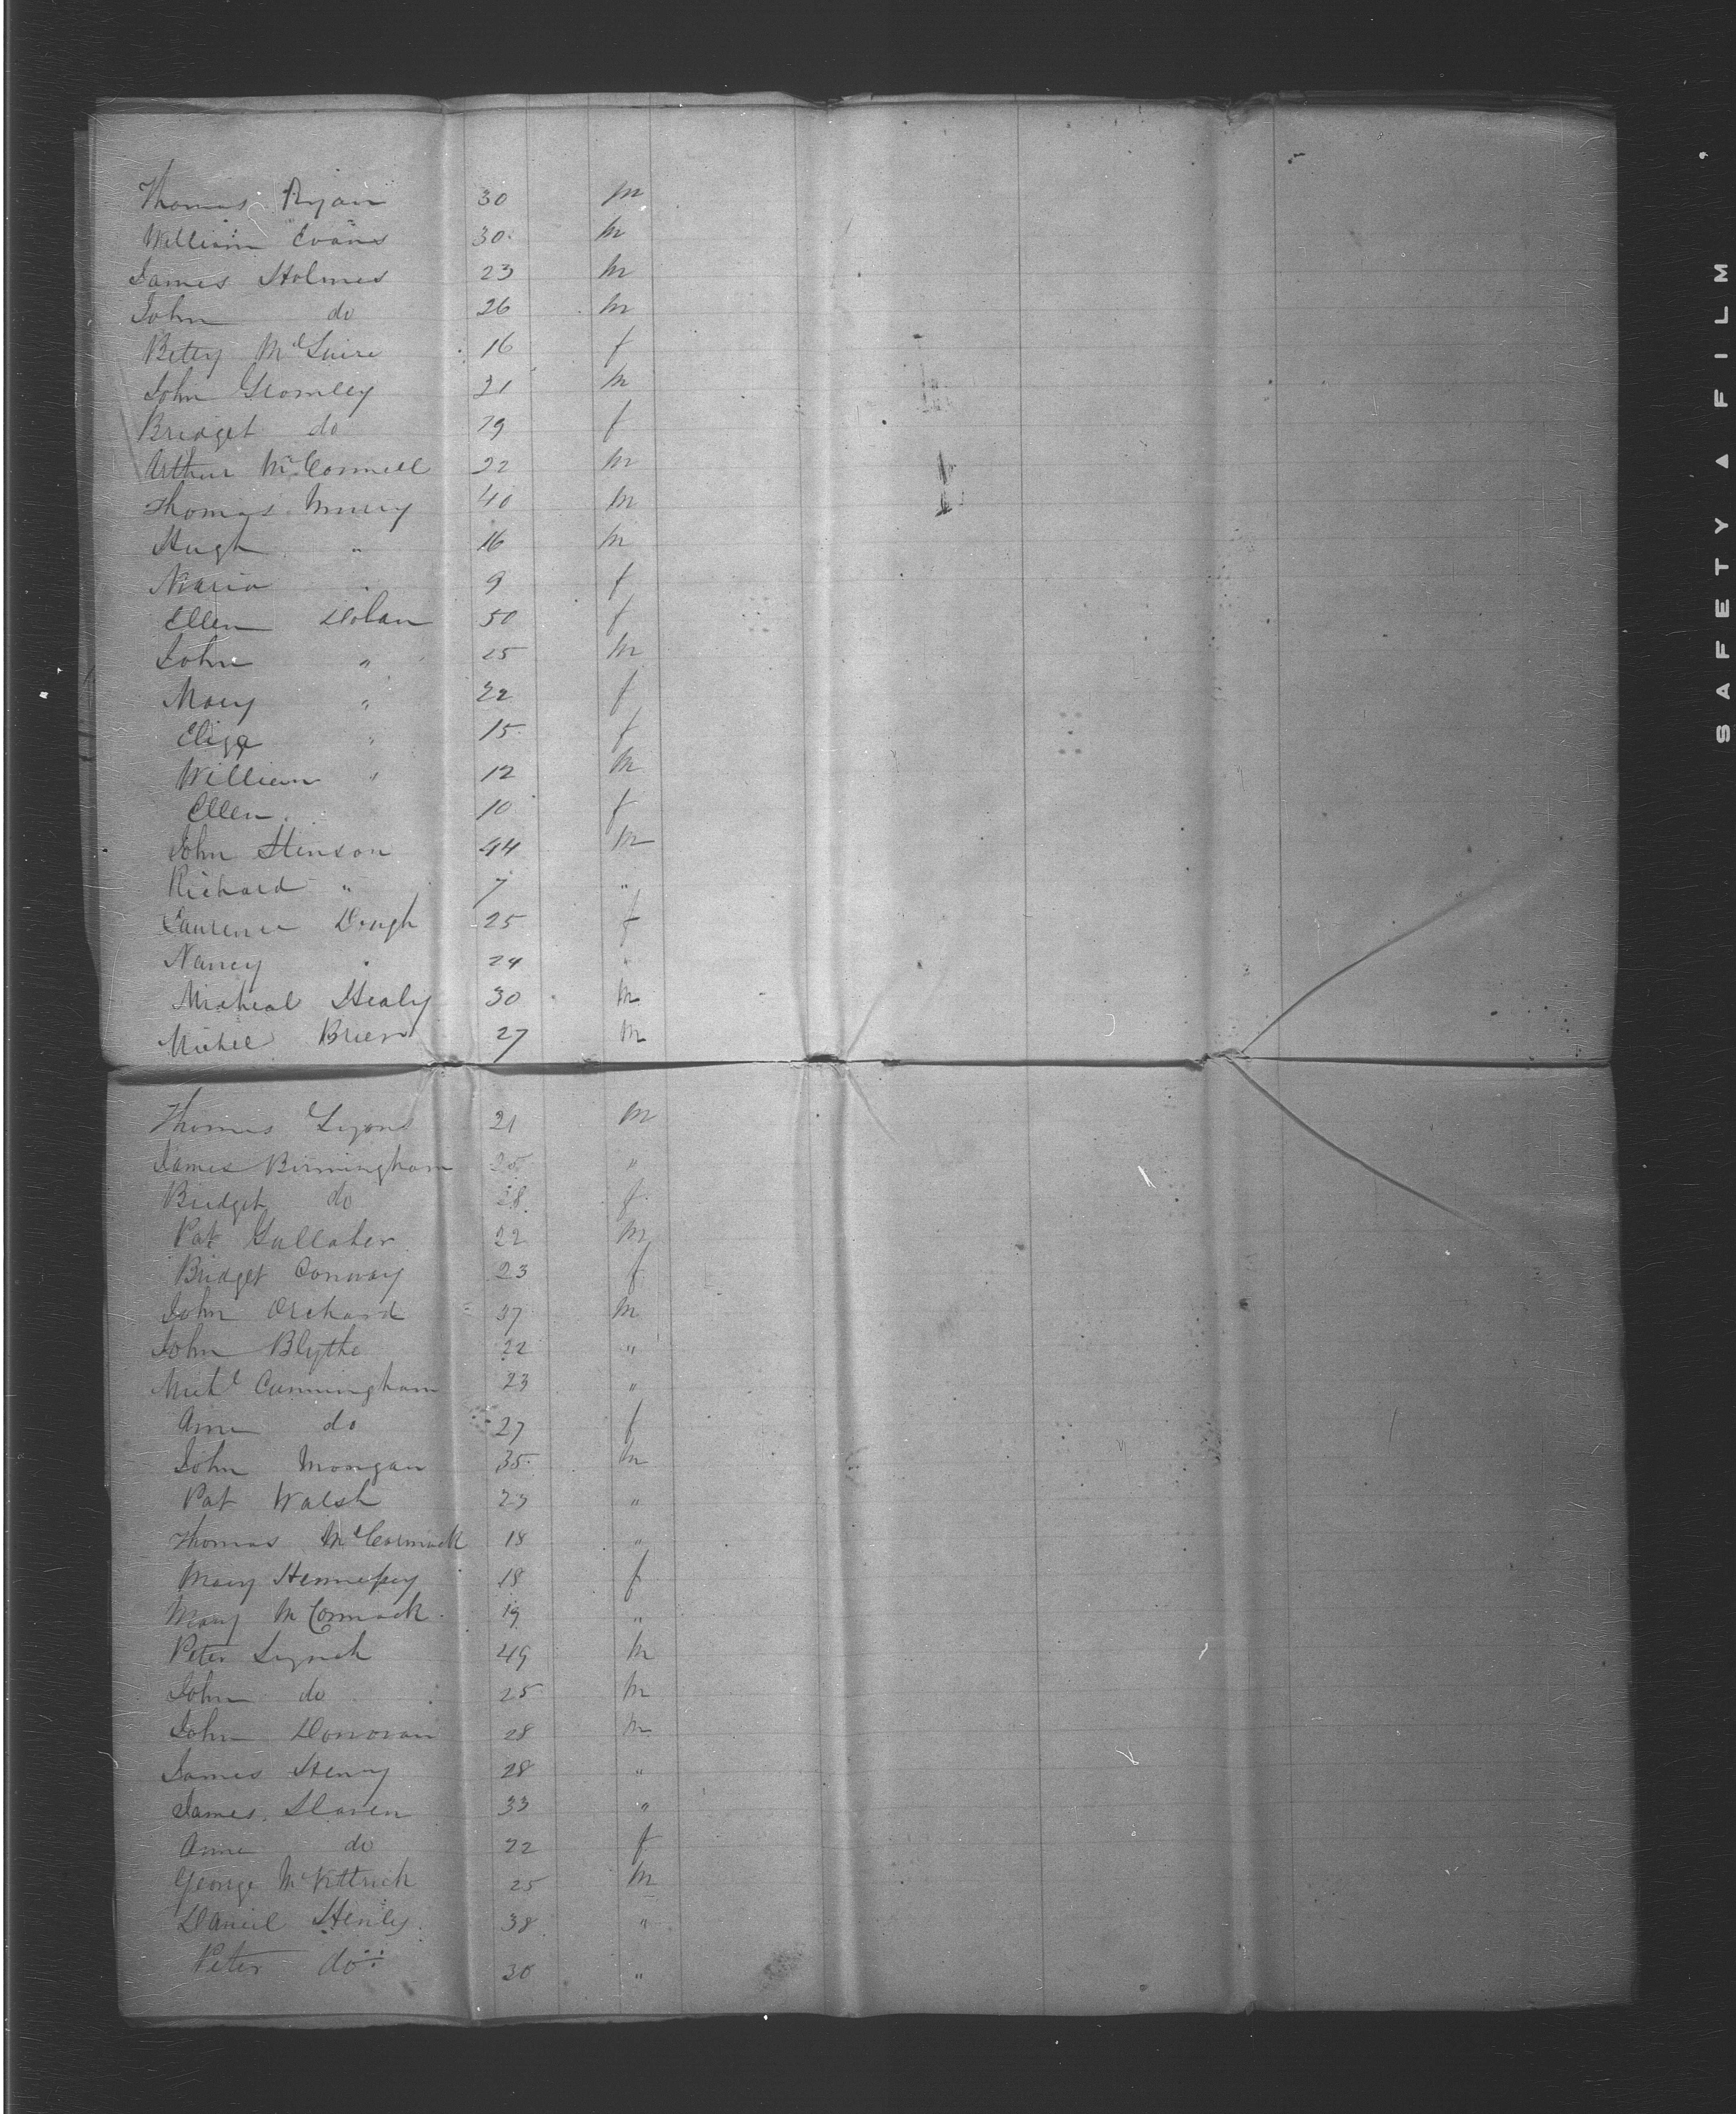 Thomas Ryan 30 m
William Evans 30 m
James Holmes 23 m
John do 26 m
Betty McGuire 16 f
John Gromley 21 m
Bridget do 19 f
Arthur McConnell 22 m
Thomas Murry 40 m
Hugh " 16 m
Maria " 9 f
Ellen Dolan 50 f
John " 25 m
Mary " 22 f
Eliza " 15 f
William " 12 m
Ellen 10 f
John Henson 44 m
Richard " 7 "
Laurence 25 f
Nancy " 24 "
Micheal Healy 30 m
Michel Brien 27 m
Thomas Lyons 21 m
James Birmingham 25 "
Bridget do 28 f
Pat Gallaher 22 m
Bridget Conway 23 f
John Orchard 37 m
John Blythe 22 "
Michl Cunningham 23 "
Ann do 27 f
John Mongan 35 m
Pat Walsh 23 "
Thomas McCormack 18 "
Mary Hennessy 18 f
Mary McCormack 19 "
Peter Lynch 49 m
John do 25 m
John Donovan 28 m
James Henry 28 "
James Slaven 33 "
Anne do 22 f
George McKittrick 25 m
Daniel Henly 38 "
Peter do 30 "
SAFETY ▲ FILM